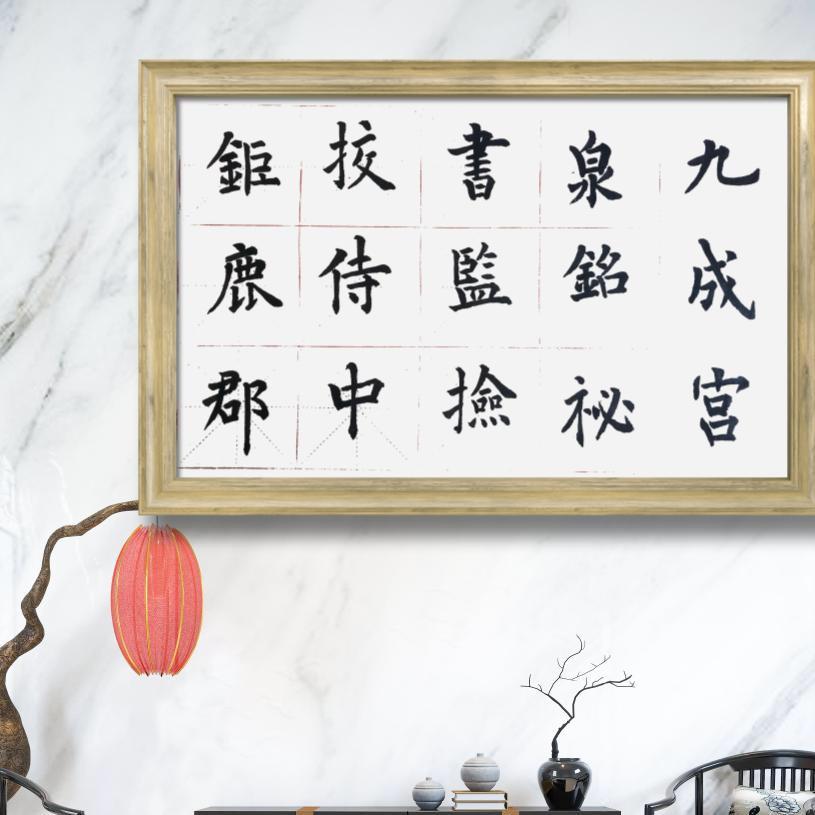 九成宮
泉銘祕
書監撿
挍侍中
鉅鹿郡